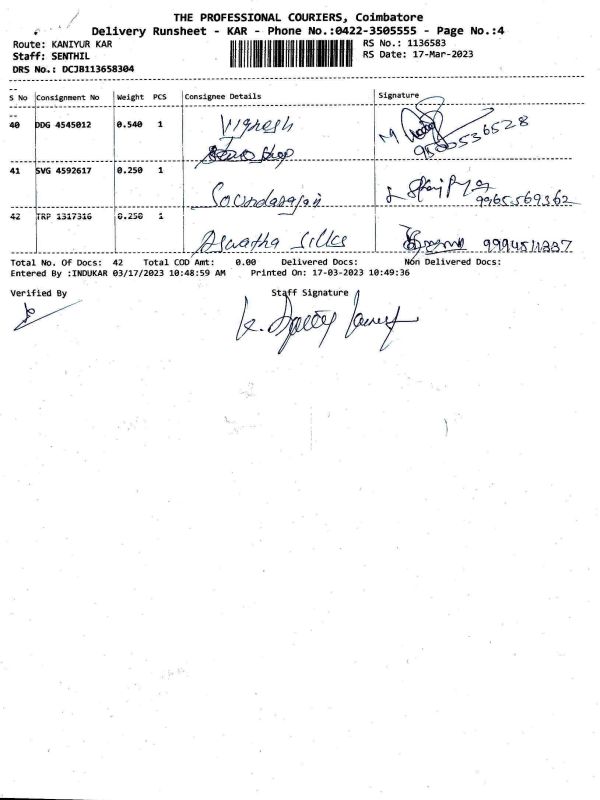 THE PROFESSIONAL COURIERS, Coimbatore
Delivery Runsheet - KAR - Phone No.:0422-3505555 - Page No.:4
Route: KANIYUR KAR RS No.: 1136583
Staff: SENTHIL RS Date: 17-Mar-2023
DRS No.: DCJB113658304
S No Consignment No Weight PCS Consignee Details Signature
40 DDG 4545012 0.540 1 Vignesh
9500536528
41 SVG 4592617 0.250 1 Soundarajan 9965569362
42 TRP 1317316 0.250 1 Aswatha silks
Total No. Of Docs: 42 Total COD Amt: 0.00 Delivered Docs: Non Delivered Docs:
Entered By :INDUKAR 03/17/2023 10:48:59 AM Printed On: 17-03-2023 10:49:36
Verified By Staff Signature